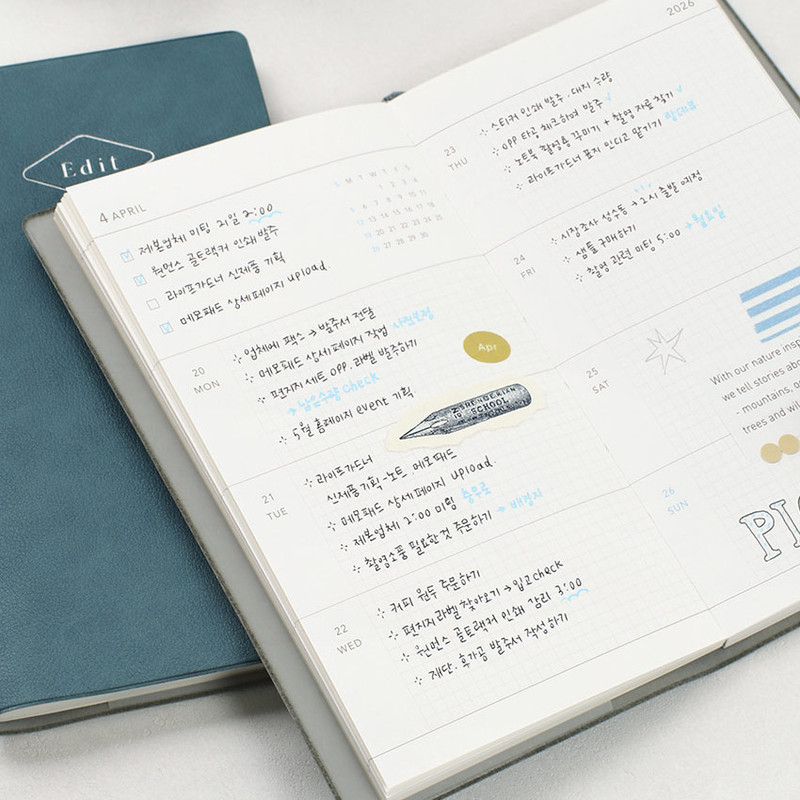 Edit
4 APRIL
S M T W T F S
1 2 3 4
5 6 7 8 9 10 11
12 13 14 15 16 17 18
19 20 21 22 23 24 25
26 27 28 29 30
제본업체 미팅 21일 2:00
원먼스 골트래커 인쇄 발주
라이프가드너 신제품 기획
메모패드 상세페이지 upload.
20
MON
업체에 팩스 → 발주서 전달
메모패드 상세페이지 작업
편지지 세트 OPP. 라벨 발주하기
→ 남은수량 check
5월 홈페이지 event 기획
Apr
SPENCERIAN
SCHOOL
21
TUE
라이프가드너
신제품기획 - 노트. 메모패드
메모패드 상세페이지 upload.
제본업체 2:00 미팅 충무로
촬영소품 필요한것 주문하기 → 배경지
22
WED
커피 원두 주문하기
편지지라벨 찾아오기 → 입고check
원먼스 골트래커 인쇄 감리 3:00
재단. 후가공 발주서 작성하기
2026
23
THU
스티커 인쇄 발주. 대지 수량
OPP 타공 체크하여 발주
노트북 촬영용 꾸미기 + 촬영 자료찾기
라이프가드너 표지 인디고 맡기기
24
FRI
시장조사 성수동 → 2시 출발 예정
샘플 구매하기
촬영 관련 미팅 5:00 → 월요일
25
SAT
With our nature insp
we tell stories abou
- mountains, o
trees and wil
26
SUN
PIC